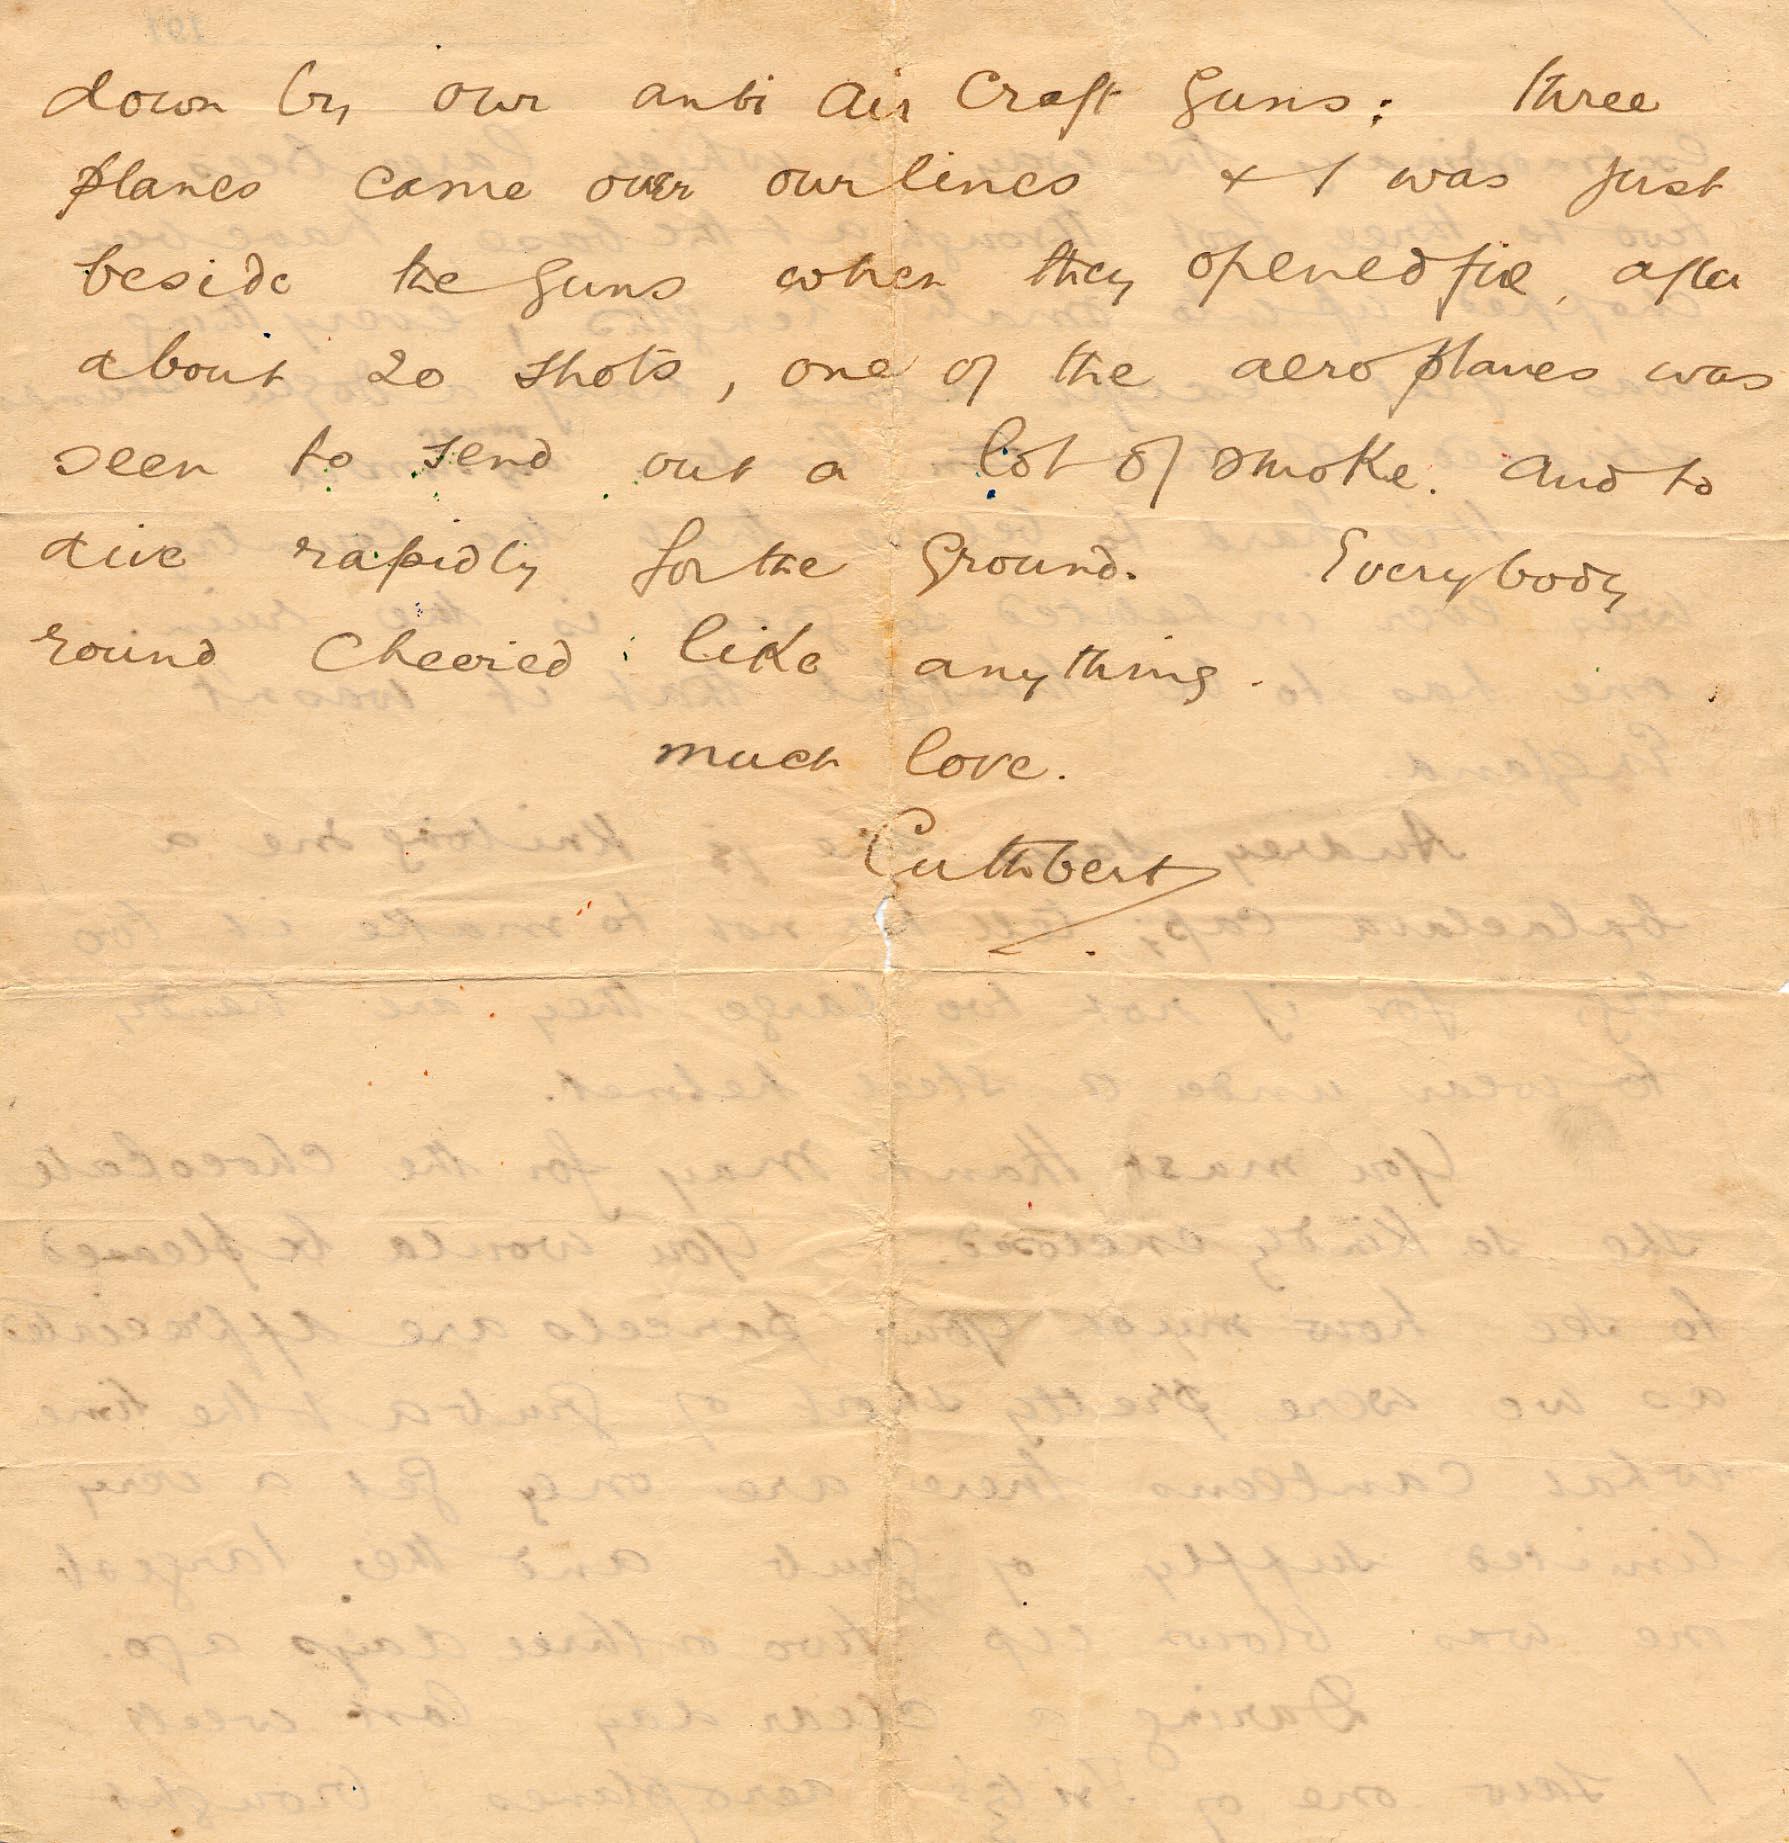 down by our anti Air Craft Guns: three
planes came over our lines & I was just
beside the Guns when they opened fire, after
about 20 shots, one of the aeroplanes was
seen to send out a lot of smoke. and to
dive rapidly for the Ground. Everybody
round Cheeried like anything.
much love.
Cuthbert